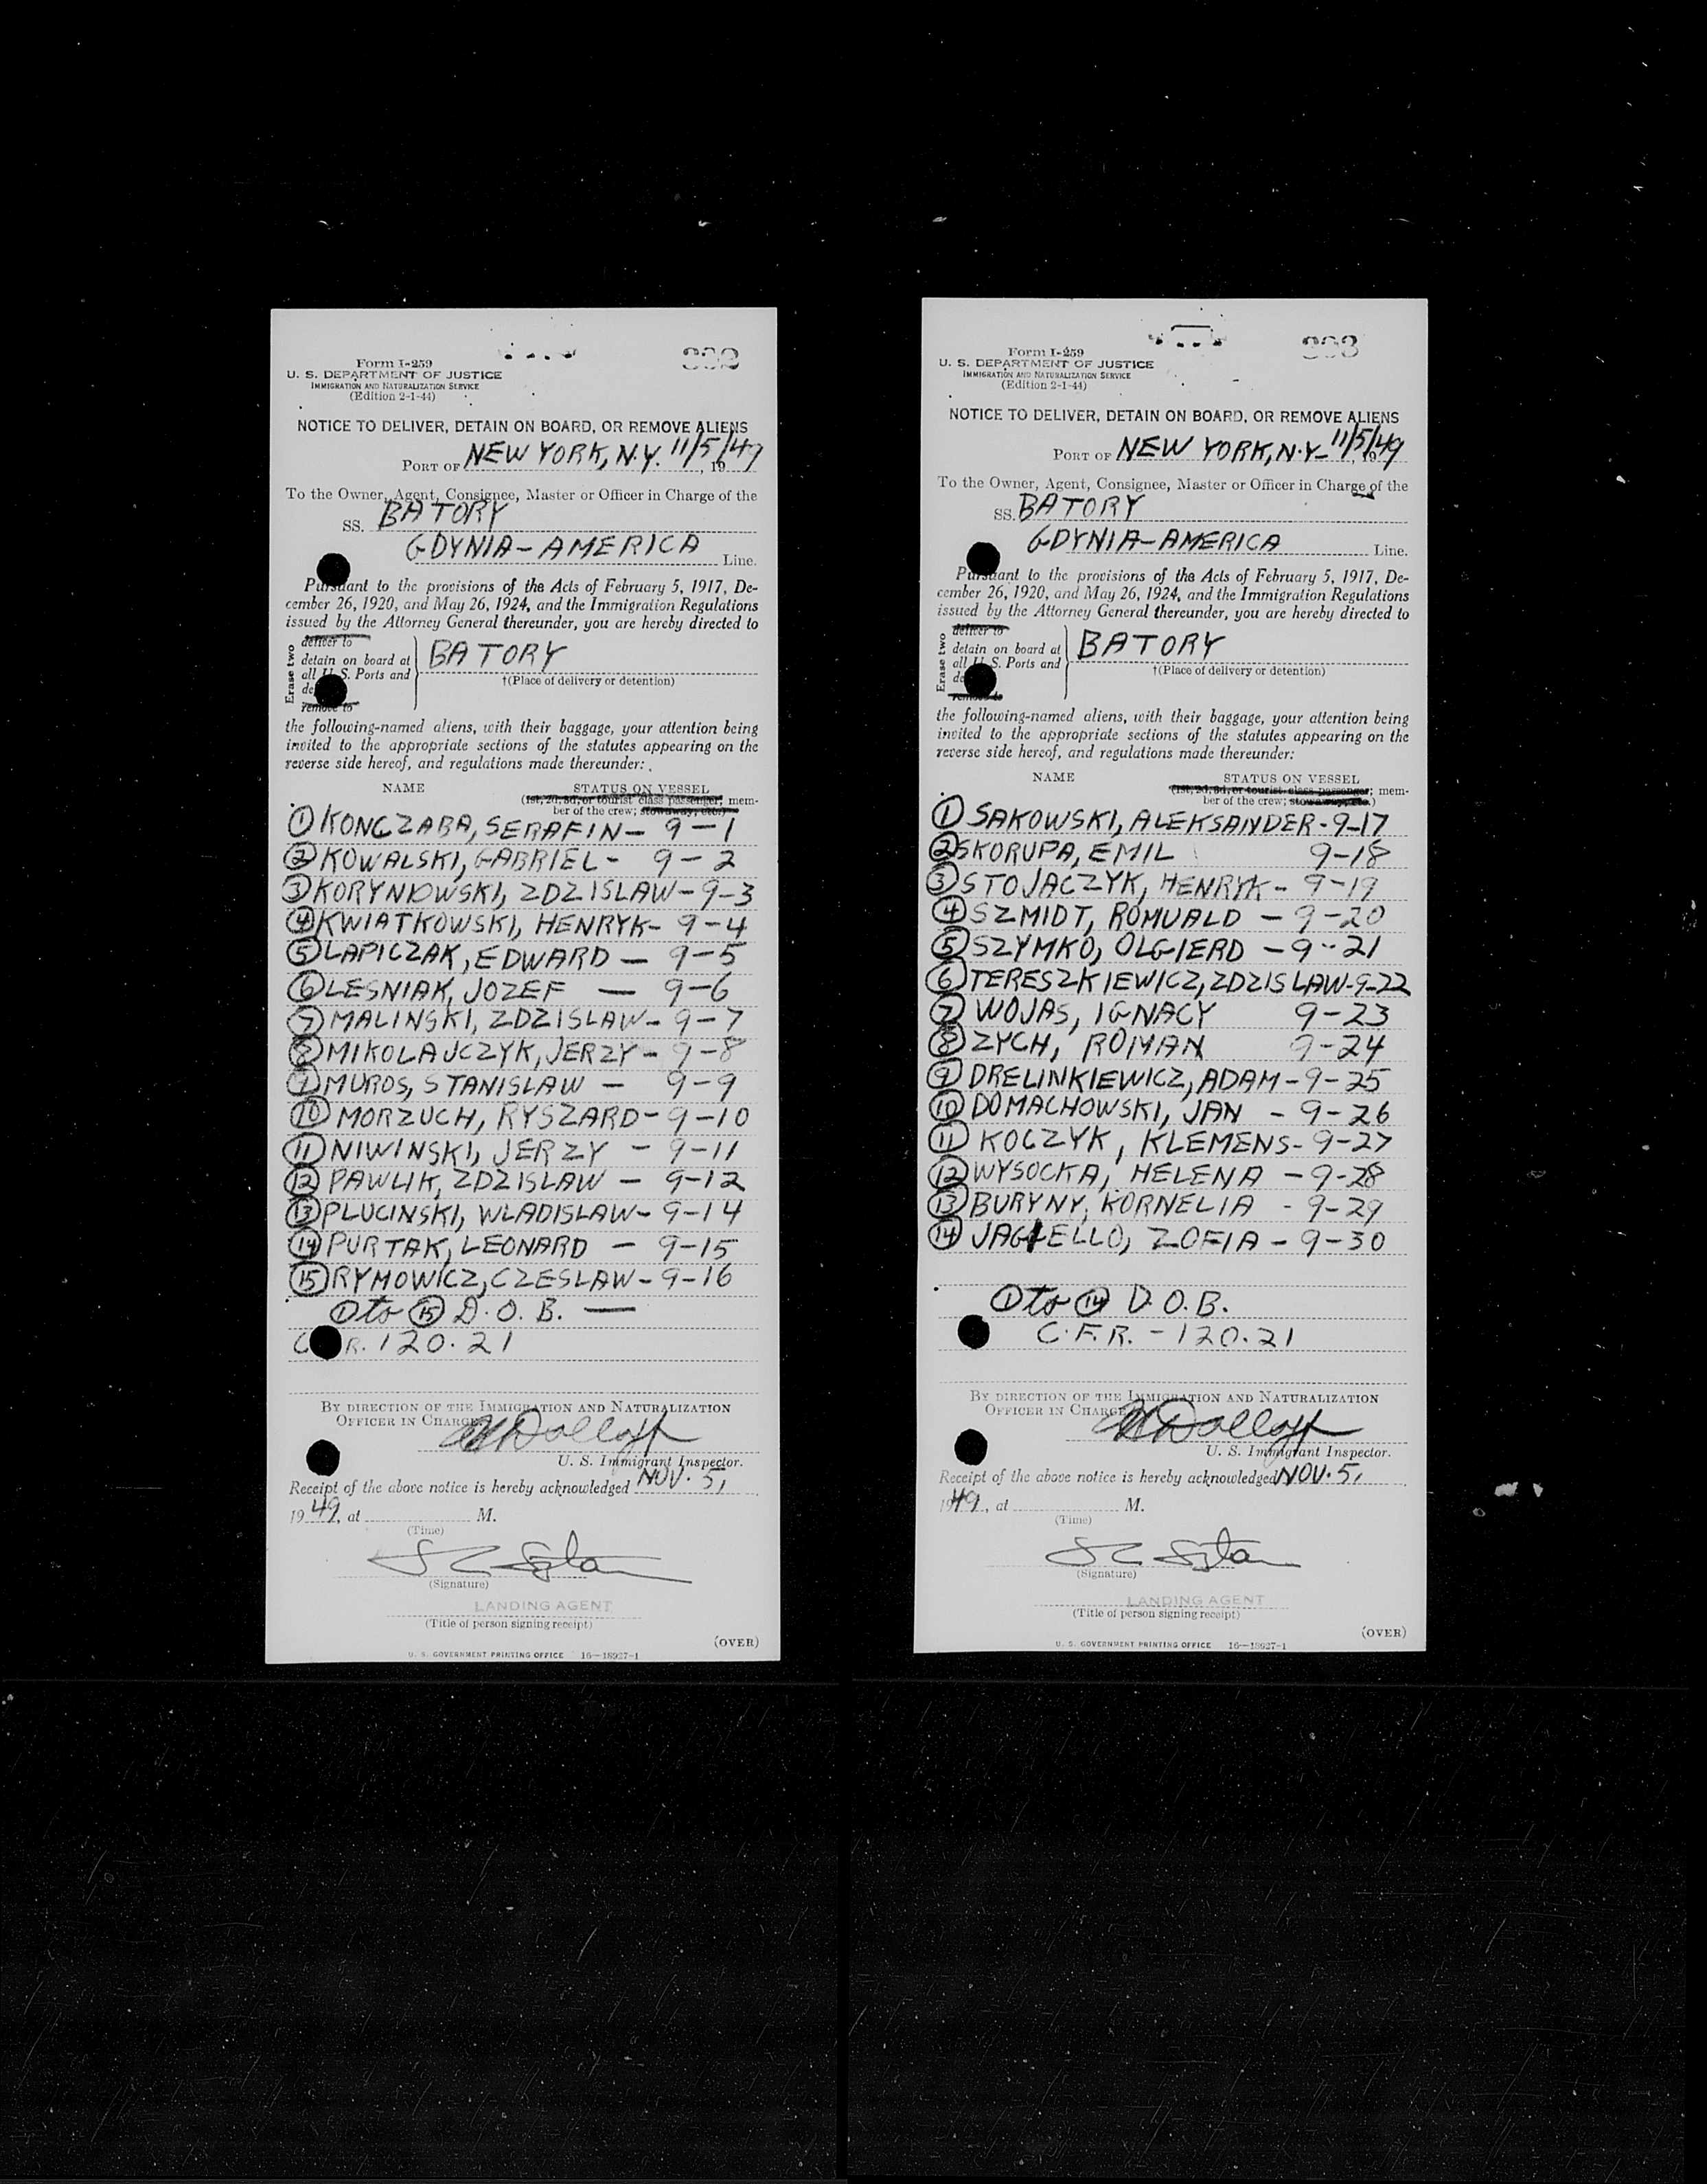 332
Form I-259
U. S. DEPARTMENT OF JUSTICE
IMMIGRATION AND NATURALIZATION SERVICE
(Edition 2-1-44)
NOTICE TO DELIVER, DETAIN ON BOARD, OR REMOVE ALIENS
PORT OF NEW YORK, N.Y. 11/5/49, 19
To the Owner, Agent, Consignee, Master or Officer in Charge of the
SS. BATORY
GDYNIA-AMERICA Line.
Pursuant to the provisions of the Acts of February 5, 1917, De-
cember 26, 1920, and May 26, 1924, and the Immigration Regulations
issued by the Attorney General thereunder, you are hereby directed to
Erase two
deliver to
detain on board at
all U. S. Ports and
remove to
BATORY
†(Place of delivery or detention)
the following-named aliens, with their baggage, your attention being
invited to the appropriate sections of the statutes appearing on the
reverse side hereof, and regulations made thereunder:
NAME STATUS ON VESSEL
(1st, 2d, 3d, or tourist class passenger; mem-
ber of the crew; stowaway, etc.)
① KONCZABA, SERAFIN - 9-1
② KOWALSKI, GABRIEL - 9-2
③ KORYNIOWSKI, ZDZISLAW - 9-3
④ KWIATKOWSKI, HENRYK - 9-4
⑤ LAPICZAK, EDWARD - 9-5
⑥ LESNIAK, JOZEF - 9-6
⑦ MALINSKI, ZDZISLAW - 9-7
⑧ MIKOLAJCZYK, JERZY - 9-8
⑨ MUROS, STANISLAW - 9-9
⑩ MORZUCH, RYSZARD - 9-10
⑪ NIWINSKI, JERZY - 9-11
⑫ PAWLIK, ZDZISLAW - 9-12
⑬ PLUCINSKI, WLADISLAW - 9-14
⑭ PURTAK, LEONARD - 9-15
⑮ RYMOWICZ, CZESLAW - 9-16
① to ⑮ D.O.B. —
C R. 120.21
BY DIRECTION OF THE IMMIGRATION AND NATURALIZATION
OFFICER IN CHARGE
U. S. Immigrant Inspector.
Receipt of the above notice is hereby acknowledged NOV. 5,
1949, at M.
(Time)
(Signature)
LANDING AGENT
(Title of person signing receipt)
(OVER)
U. S. GOVERNMENT PRINTING OFFICE 16—18927-1
333
Form I-259
U. S. DEPARTMENT OF JUSTICE
IMMIGRATION AND NATURALIZATION SERVICE
(Edition 2-1-44)
NOTICE TO DELIVER, DETAIN ON BOARD, OR REMOVE ALIENS
PORT OF NEW YORK, N.Y. - 11/5/49, 19
To the Owner, Agent, Consignee, Master or Officer in Charge of the
SS. BATORY
GDYNIA-AMERICA Line.
Pursuant to the provisions of the Acts of February 5, 1917, De-
cember 26, 1920, and May 26, 1924, and the Immigration Regulations
issued by the Attorney General thereunder, you are hereby directed to
Erase two
deliver to
detain on board at
all U. S. Ports and
remove to
BATORY
†(Place of delivery or detention)
the following-named aliens, with their baggage, your attention being
invited to the appropriate sections of the statutes appearing on the
reverse side hereof, and regulations made thereunder:
NAME STATUS ON VESSEL
(1st, 2d, 3d, or tourist class passenger; mem-
ber of the crew; stowaway, etc.)
① SAKOWSKI, ALEKSANDER - 9-17
② SKORUPA, EMIL 9-18
③ STOJACZYK, HENRYK - 9-19
④ SZMIDT, ROMUALD - 9-20
⑤ SZYMKO, OLGIERD - 9-21
⑥ TERESZKIEWICZ, ZDZISLAW - 9-22
⑦ WOJAS, IGNACY 9-23
⑧ ZYCH, ROMAN 9-24
⑨ DRELINKIEWICZ, ADAM - 9-25
⑩ DOMACHOWSKI, JAN - 9-26
⑪ KOCZYK, KLEMENS - 9-27
⑫ WYSOCKA, HELENA - 9-28
⑬ BURYNY, KORNELIA - 9-29
⑭ JAGIELLO, ZOFIA - 9-30
① to ⑭ D.O.B.
C.F.R. - 120.21
BY DIRECTION OF THE IMMIGRATION AND NATURALIZATION
OFFICER IN CHARGE
U. S. Immigrant Inspector.
Receipt of the above notice is hereby acknowledged NOV. 5,
1949, at M.
(Time)
(Signature)
LANDING AGENT
(Title of person signing receipt)
(OVER)
U. S. GOVERNMENT PRINTING OFFICE 16—18927-1